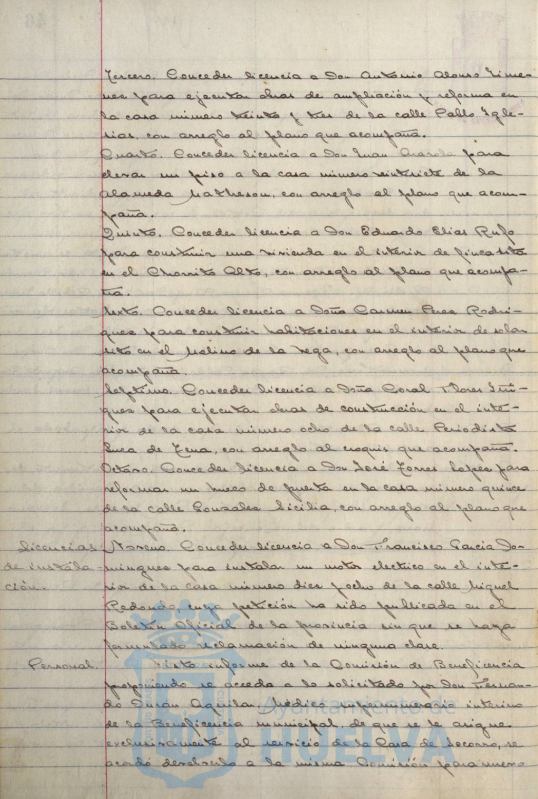 Tercero. Conceder licencia a Don Antonio Alonso Jime-
nez para ejecutar obras de ampliación y reforma en
la casa número treinta y tres de la calle Pablo Igle-
sias, con arreglo al plano que acompaña.
Cuarto. Conceder licencia a Don Juan para
elevar un piso a la casa número veintisiete de la
Alameda Matheson, con arreglo al plano que acom-
paña.
Quinto. Conceder licencia a Don Eduardo Elias Rufo
para construir una vivienda en el interior de finca sita
en el Chorrito Alto, con arreglo al plano que acompa-
ña.
Sexto. Conceder licencia a Doña Carmen Perez Rodri-
guez para construir habitaciones en el interior de solar
sito en el Molino de la Vega, con arreglo al plano que
acompaña.
Septimo. Conceder licencia a Doña Coral Flores Iñi-
guez para ejecutar obras de construcción en el inte-
rior de la casa número ocho de la calle Periodista
Luca de Tena, con arreglo al croquis que acompaña.
Octavo. Conceder licencia a Don José Torres Lopez para
reformar un hueco de puerta en la casa número quince
de la calle Gonzalez Sicilia, con arreglo al plano que
acompaña.
licencias de instala-
ción.
Noveno. Conceder licencia a Don Francisco Garcia Do-
minguez para instalar un motor electrico en el inte-
rior de la casa número diez y ocho de la calle Miguel
Redondo, cuya petición ha sido publicada en el
Boletin Oficial de la provincia sin que se haya
formulado reclamación de ninguna clase.
Personal
Visto informe de la Comisión de Beneficencia
proponiendo se acceda a lo solicitado por Don Fernan-
do Durán Aguilar, Médico supernumerario interino
de la Beneficencia municipal, de que se le asigne
exclusivamente al servicio de la Casa de Socorro, se
acordó devolverlo a la misma Comisión para nuevo
Ayuntamiento de
HUELVA